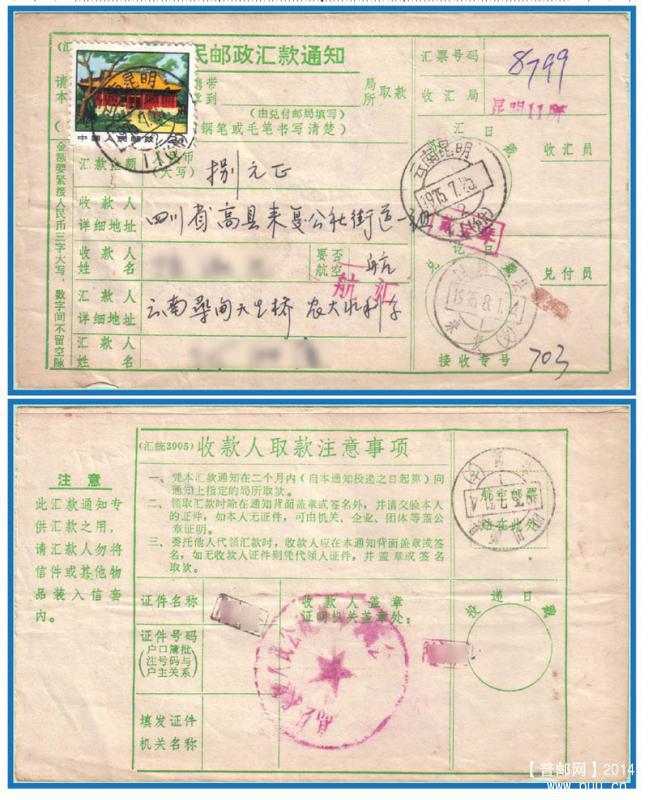 (汇
民邮政汇款通知
汇票号码
8799
收汇局
昆明11所
请
携带
局
取款
本
到
所
(由兑付邮局填写)
钢笔或毛笔书写清楚)
汇日戳
收汇员
云南昆明
1975.7.25
汇款金额
币
(大写)
捌元正
金额要紧接人民币三字大写,数字间不留空隙
收款人
详细地址
四川省高县来复公社街道
收款人
姓名
要否
航空
航
航汇
兑讫日戳
兑付员
汇款人
详细地址
云南
天生桥 农大水利
汇款人
姓名
接收专号
703
(汇统3005)收款人取款注意事项
注意
此汇款通知专
供汇款之用,
请汇款人勿将
信件或其他物
品装入信套
内。
一、凭本汇款通知在二个月内(自本通知投递之日起算)向
通知上指定的局所取款。
二、领取汇款时除在通知背面盖章或签名外,并请交验本人
的证件,如本人无证件,可由机关、企业、团体等盖公
章证明。
三、委托他人代领汇款时,收款人应在本通知背面盖章或签
名,如无收款人证件则凭代领人证件,并盖章或签名
取款。
航空邮票
贴在此处
证件名称
收款人盖章
证明机关盖章处:
投递日戳
证件号码
(户口簿批
注号码与
户主关系)
填发证件
机关名称
【普邮网】2014
www.puu.cn